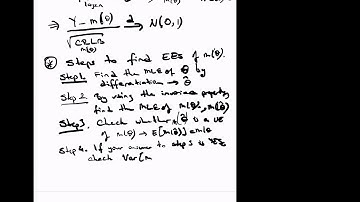 ⇒ Y - m(θ) d→ N(0,1)
√CRLB
m(θ)
⊛ Steps to find EEs of m(θ).
Step 1. Find the MLE of θ by
differentiation → θ̂
Step 2. By using the invariance property
find the MLE of m(θ) → m(θ̂)
Step 3. Check whether m(θ̂) is a UE
of m(θ) → E[m(θ̂)] = m(θ)
Step 4. If your answer to step 3 is YES
check Var[m